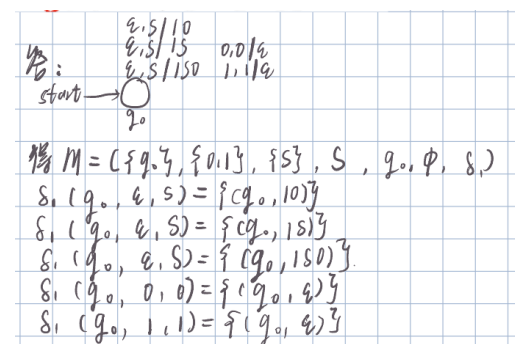 ε,S/10
ε,S/1S 0,0/ε
答: ε,S/1S0 1,1/ε
start
q₀
得 M = ({q₀}, {0,1}, {S}, S, q₀, φ, δ₁)
δ₁ (q₀, ε, S) = {(q₀, 10)}
δ₁ (q₀, ε, S) = {(q₀, 1S)}
δ₁ (q₀, ε, S) = {(q₀, 1S0)}.
δ₁ (q₀, 0, 0) = {(q₀, ε)}
δ₁ (q₀, 1, 1) = {(q₀, ε)}